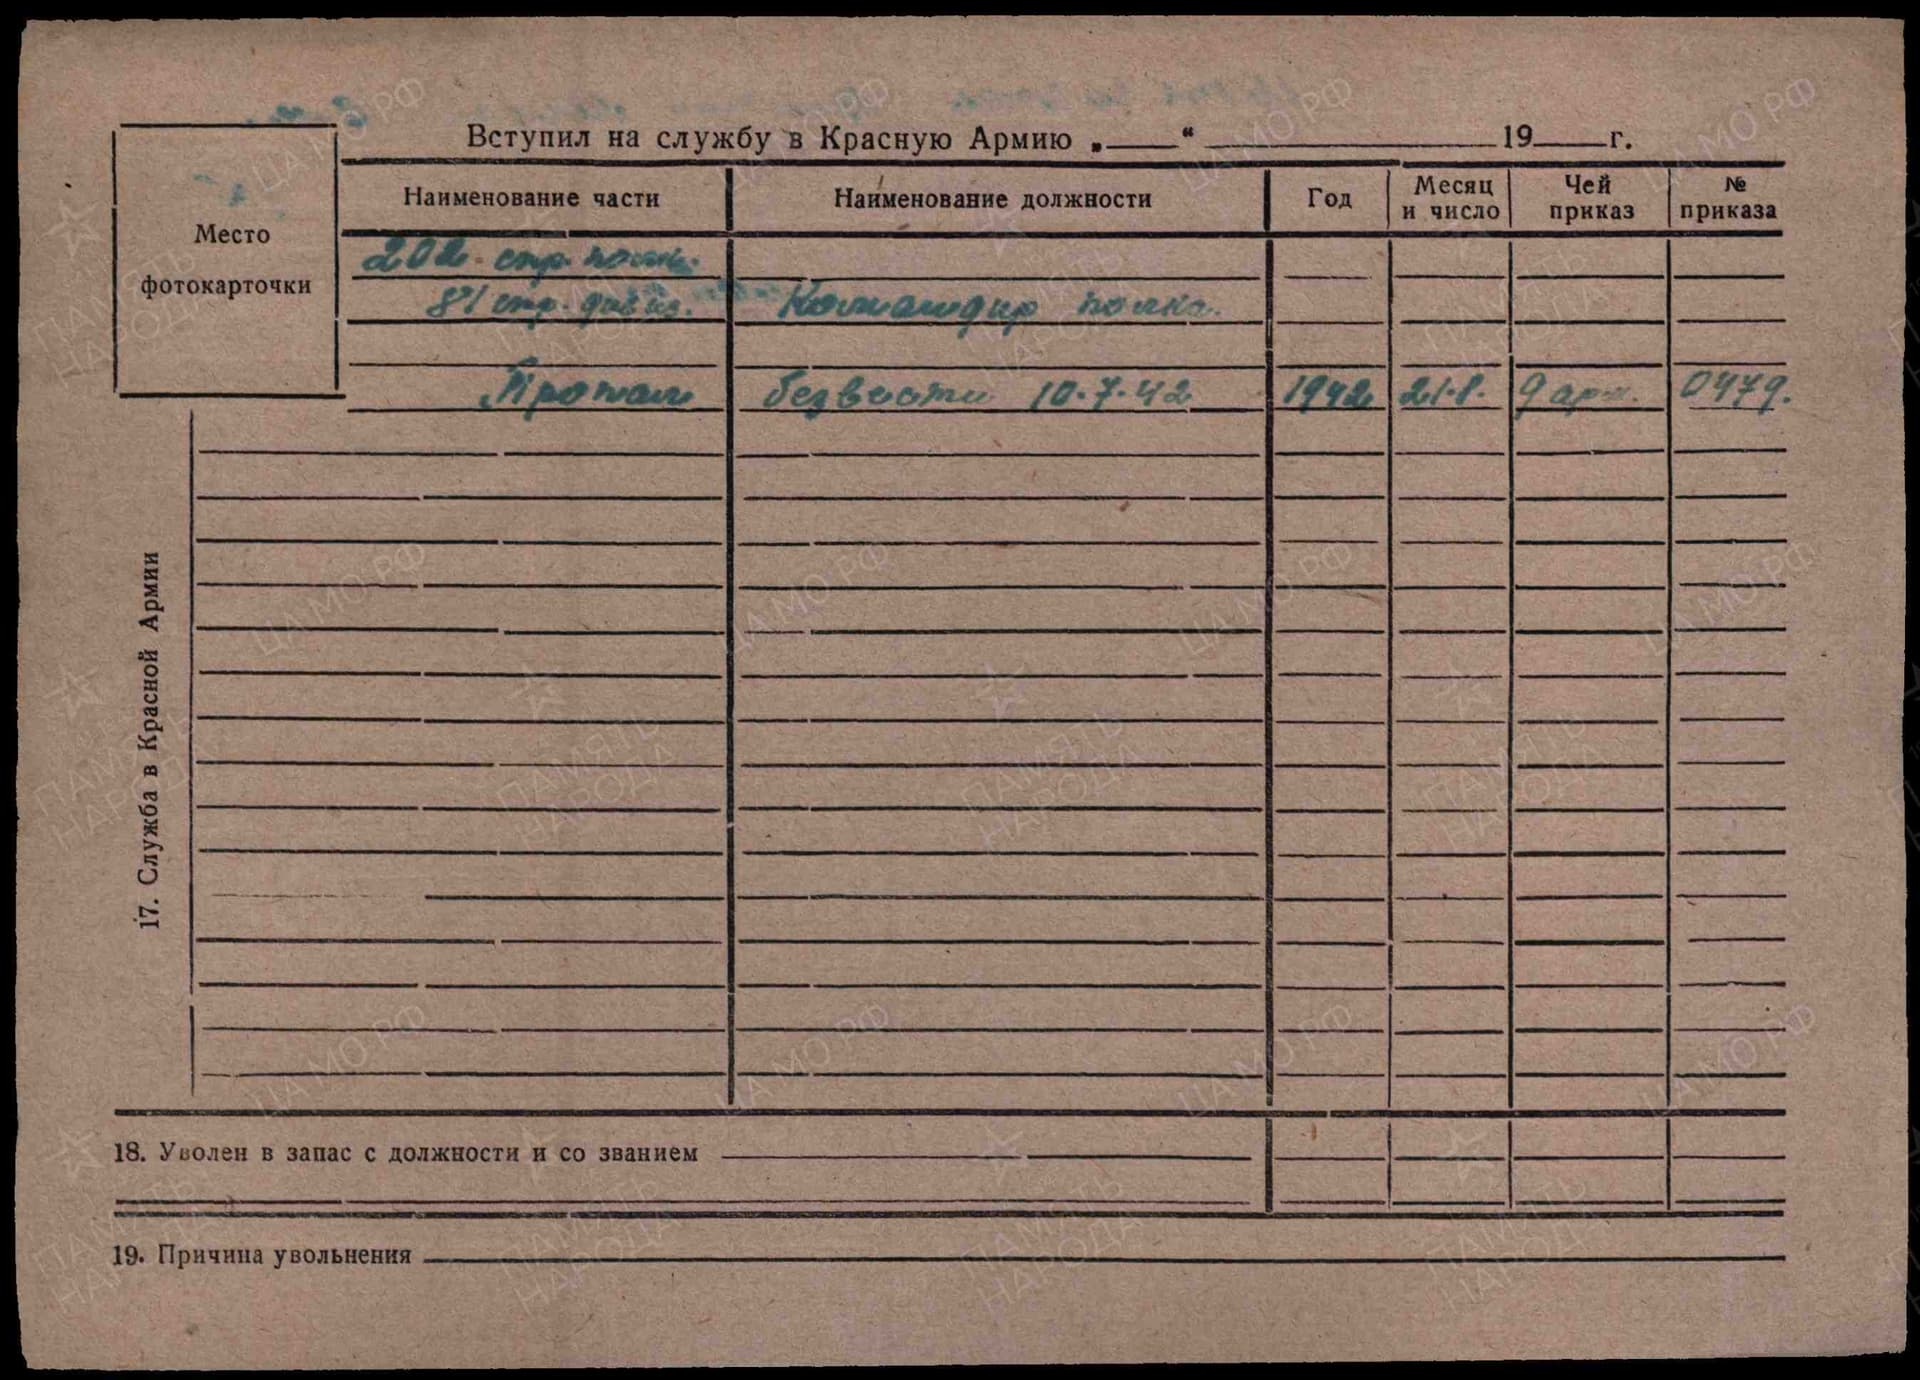 Вступил на службу в Красную Армию „____“ ____ 19____г.
Место
фотокарточки
Наименование части Наименование должности Год Месяц и число Чей приказ № приказа
202 стр. полк.
81 стр. дивиз. Командир полка.
Пропал без вести 10.7.42 1942 21.8. 9 арм. 0479.
17. Служба в Красной Армии
18. Уволен в запас с должности и со званием
19. Причина увольнения
ЦАМО РФ
ПАМЯТЬ
НАРОДА